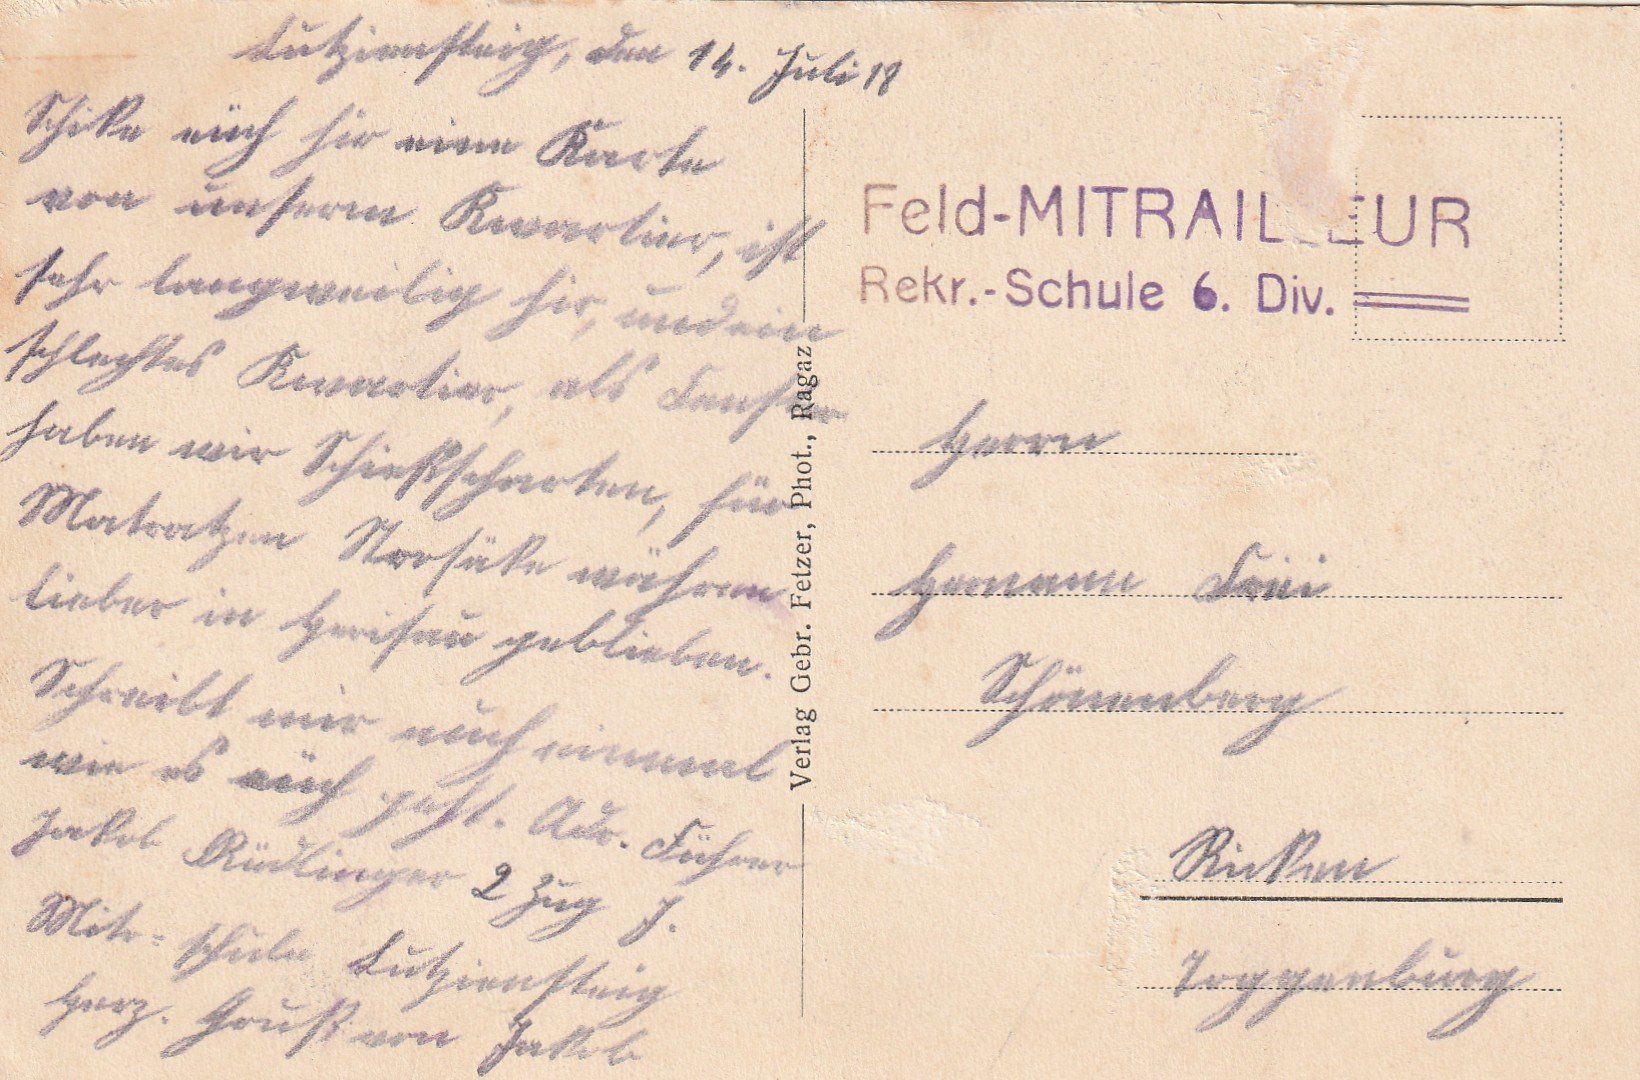 Lutziensteig, den 14. Juli 18
Schike eüch hir eine Karte
von unserm Kwartier, ist
sehr langweilig hir, und ein
schlechtes Kwartier, als Fenster
haben wir Schießscharten, für
Matratzen Strosäke währen
lieber in Herisau geblieben.
Schreibt mir auch einmal
wie es eüch geht. Adr. Führer
Jakob Rüdlinger 2 Zug J.
Mitr-schule Lutziensteig
Herz. Gruß von Jakob
Verlag Gebr. Fetzer, Phot., Ragaz
Feld-MITRAILLEUR
Rekr.-Schule 6. Div.
Herrn
Hermann Frei
Schönenberg
Ricken
Toggenburg